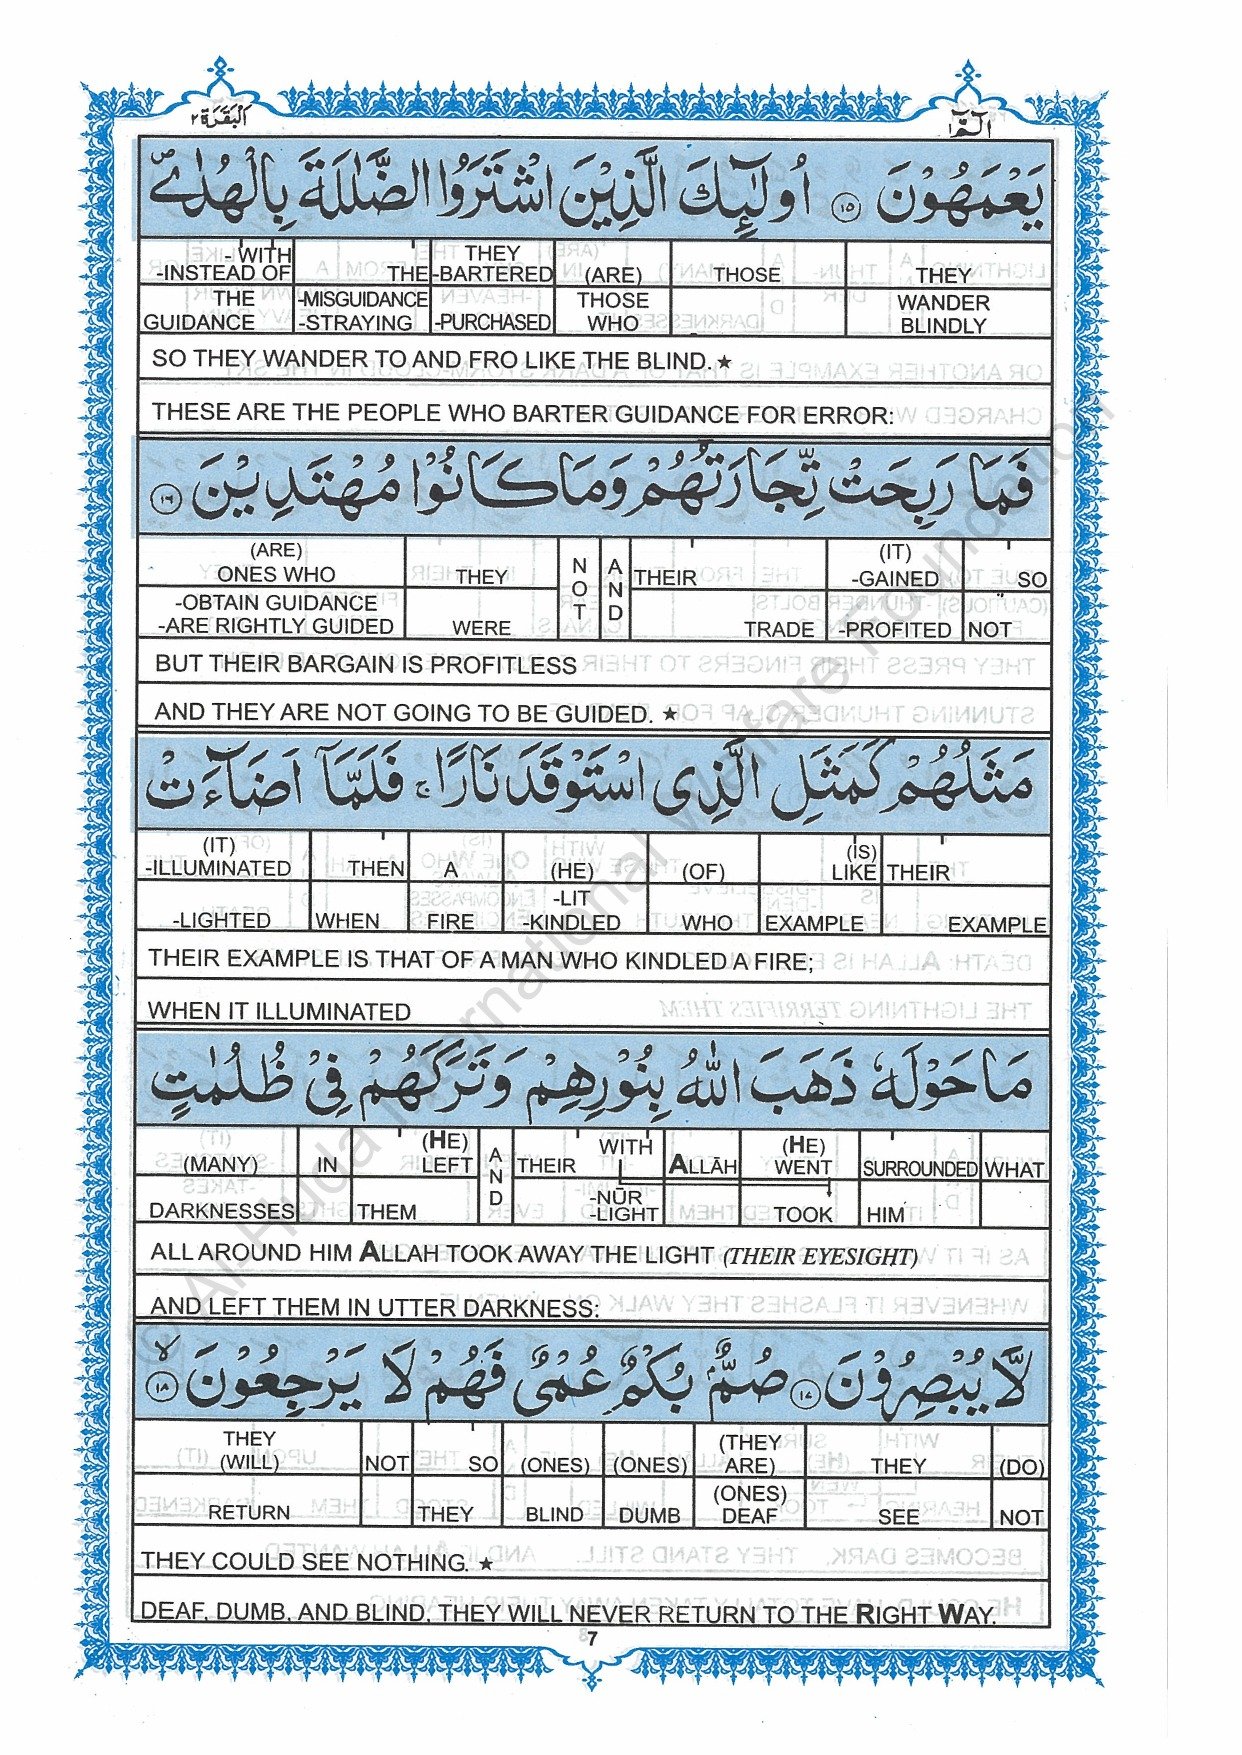 الٓمّٓ ١
البقرة ٢
يَعْمَهُوْنَ ﴿١٥﴾ اُولٰٓئِكَ الَّذِيْنَ اشْتَرَوُا الضَّلٰلَةَ بِالْهُدٰى
- WITH THEY
-INSTEAD OF THE -BARTERED (ARE) THOSE THEY
THE -MISGUIDANCE THOSE WANDER
GUIDANCE -STRAYING -PURCHASED WHO BLINDLY
SO THEY WANDER TO AND FRO LIKE THE BLIND.★
THESE ARE THE PEOPLE WHO BARTER GUIDANCE FOR ERROR:
فَمَا رَبِحَتْ تِّجَارَتُهُمْ وَمَا كَانُوْا مُهْتَدِيْنَ ﴿١٦﴾
(ARE) (IT)
ONES WHO THEY NOT AND THEIR -GAINED SO
-OBTAIN GUIDANCE
-ARE RIGHTLY GUIDED WERE TRADE -PROFITED NOT
BUT THEIR BARGAIN IS PROFITLESS
AND THEY ARE NOT GOING TO BE GUIDED. ★
مَثَلُهُمْ كَمَثَلِ الَّذِى اسْتَوْقَدَ نَارًا ۚ فَلَمَّآ اَضَآءَتْ
(IT) (IS)
-ILLUMINATED THEN A (HE) (OF) LIKE THEIR
-LIT
-LIGHTED WHEN FIRE -KINDLED WHO EXAMPLE EXAMPLE
THEIR EXAMPLE IS THAT OF A MAN WHO KINDLED A FIRE;
WHEN IT ILLUMINATED
مَا حَوْلَهٗ ذَهَبَ اللّٰهُ بِنُوْرِهِمْ وَتَرَكَهُمْ فِىْ ظُلُمٰتٍ
(HE) WITH (HE)
(MANY) IN LEFT AND THEIR ALLĀH WENT SURROUNDED WHAT
-NŪR
DARKNESSES THEM -LIGHT TOOK HIM
ALL AROUND HIM ALLAH TOOK AWAY THE LIGHT (THEIR EYESIGHT)
AND LEFT THEM IN UTTER DARKNESS:
لَّا يُبْصِرُوْنَ ﴿١٧﴾ صُمٌّۢ بُكْمٌ عُمْىٌ فَهُمْ لَا يَرْجِعُوْنَ ﴿١٨﴾ ۙ
THEY (THEY
(WILL) NOT SO (ONES) (ONES) ARE) THEY (DO)
(ONES)
RETURN THEY BLIND DUMB DEAF SEE NOT
THEY COULD SEE NOTHING. ★
DEAF, DUMB, AND BLIND, THEY WILL NEVER RETURN TO THE RIGHT WAY.
7
© Al-Huda International Welfare Foundation